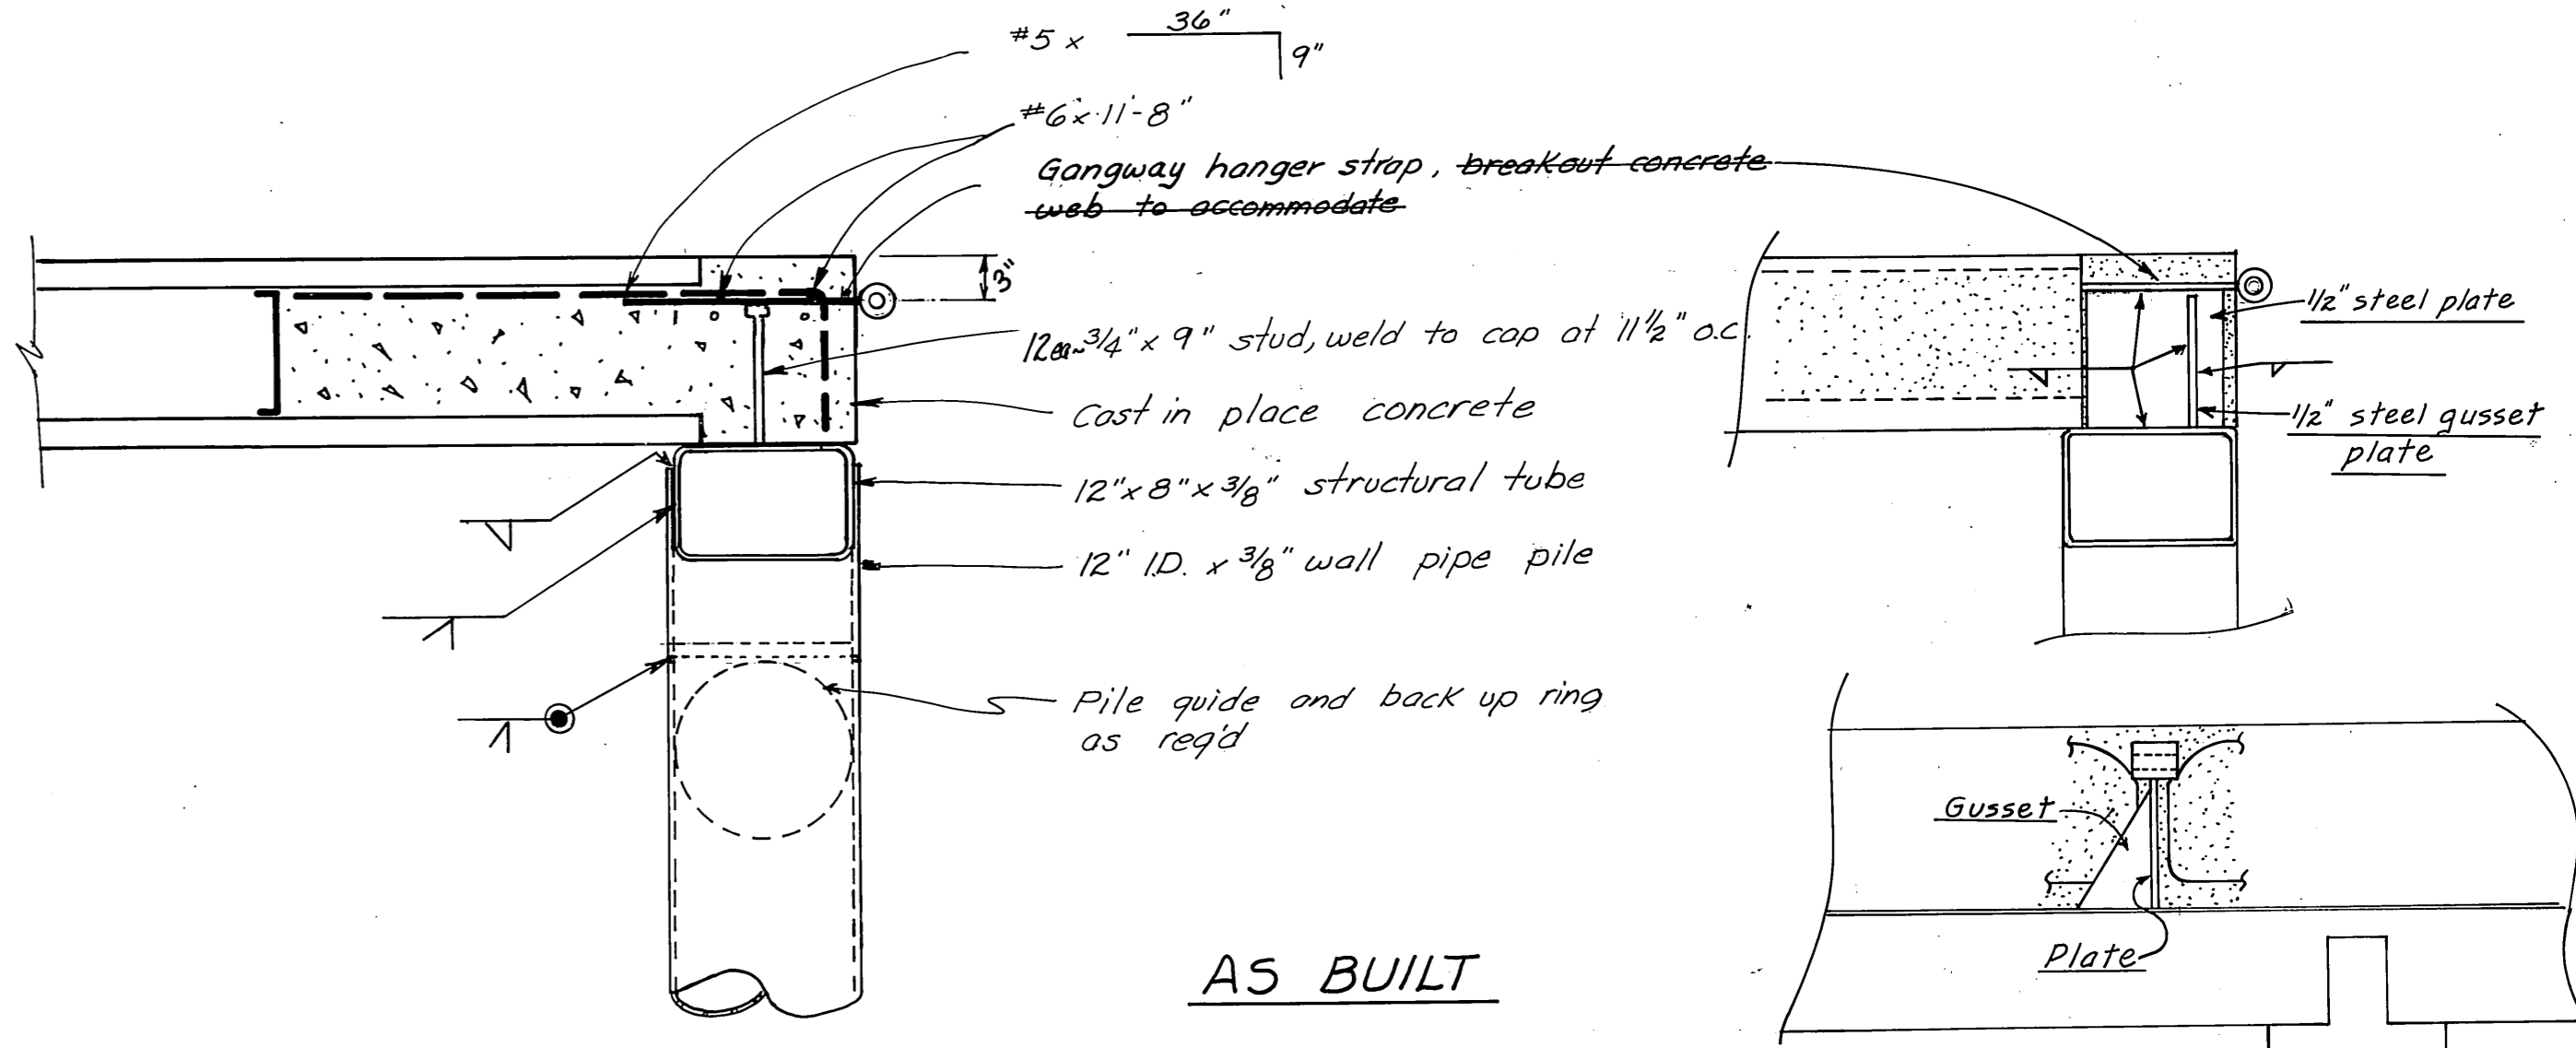 #5 x 36"
9"
#6 x 11-8"
Gangway hanger strap, breakout concrete
web to accommodate
3"
12ea~3/4" x 9" stud, weld to cap at 11 1/2" o.c.
Cast in place concrete
12" x 8" x 3/8" structural tube
12" I.D. x 3/8" wall pipe pile
Pile guide and back up ring
as req'd
AS BUILT
1/2" steel plate
1/2" steel gusset
plate
Gusset
Plate